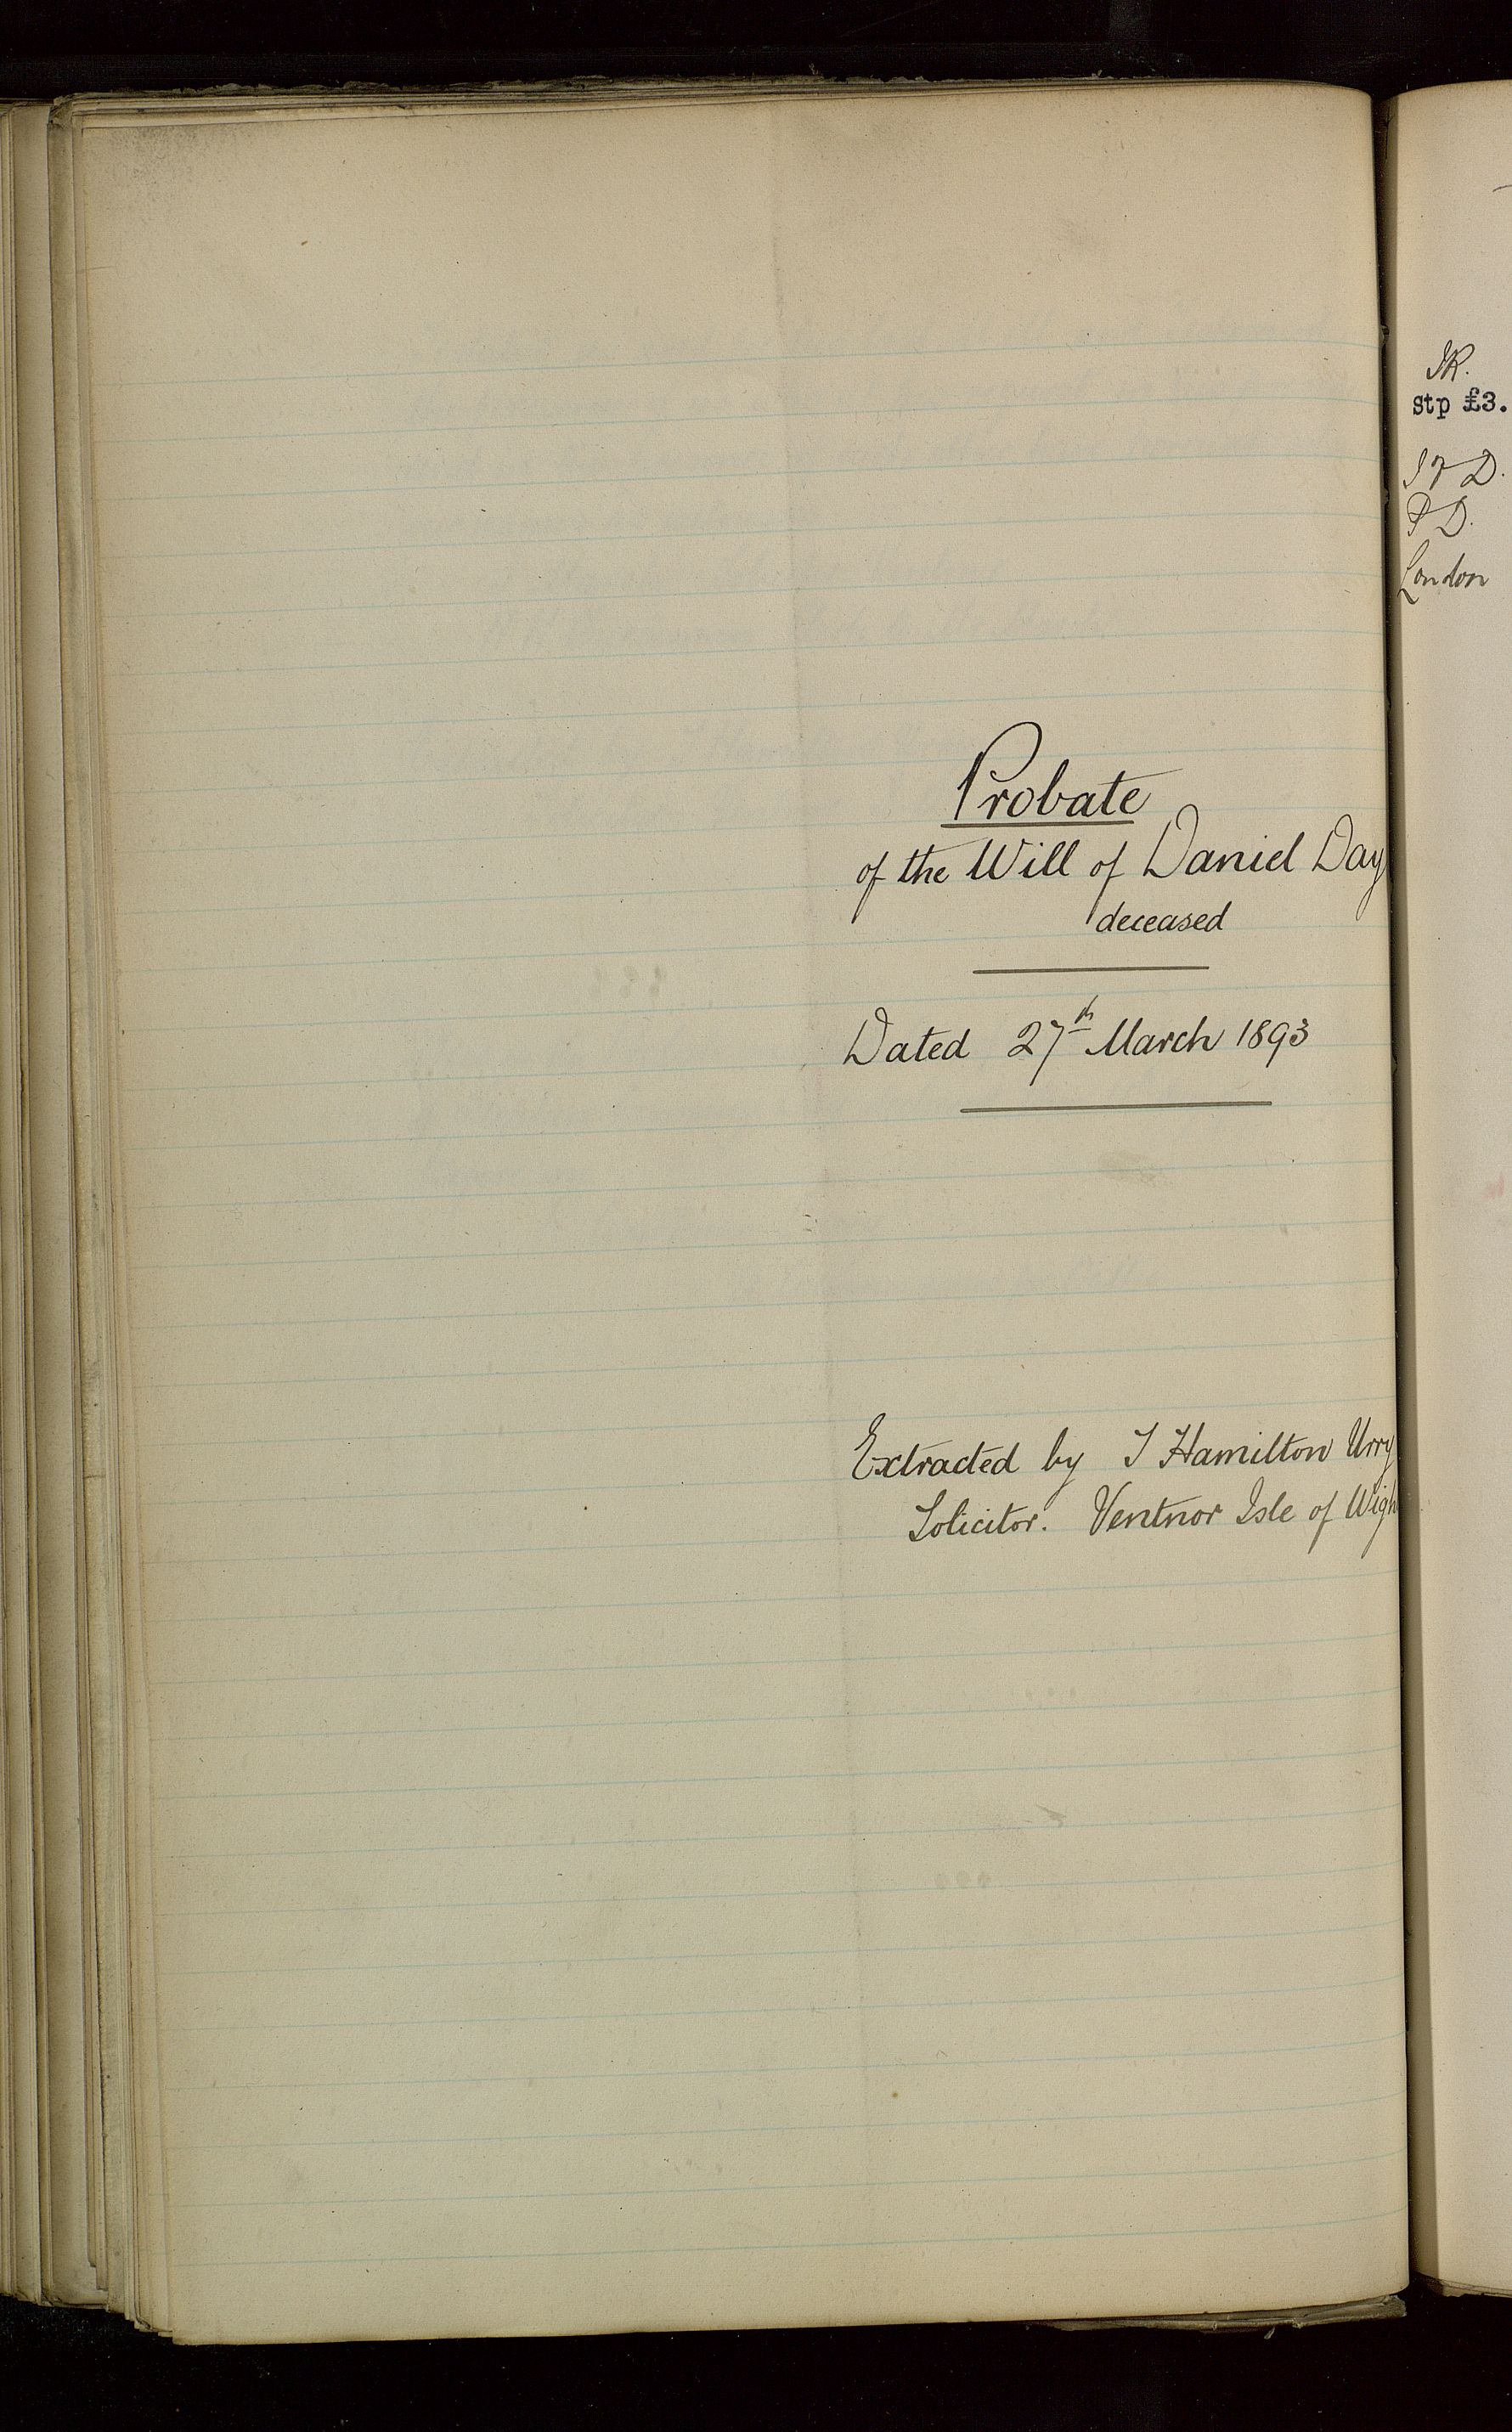 Probate
of the Will of Daniel Day
deceased
Dated 27th March 1893
Extracted by T Hamilton Urry
Solicitor. Ventnor Isle of Wigh
Stp £3.
P D.
London